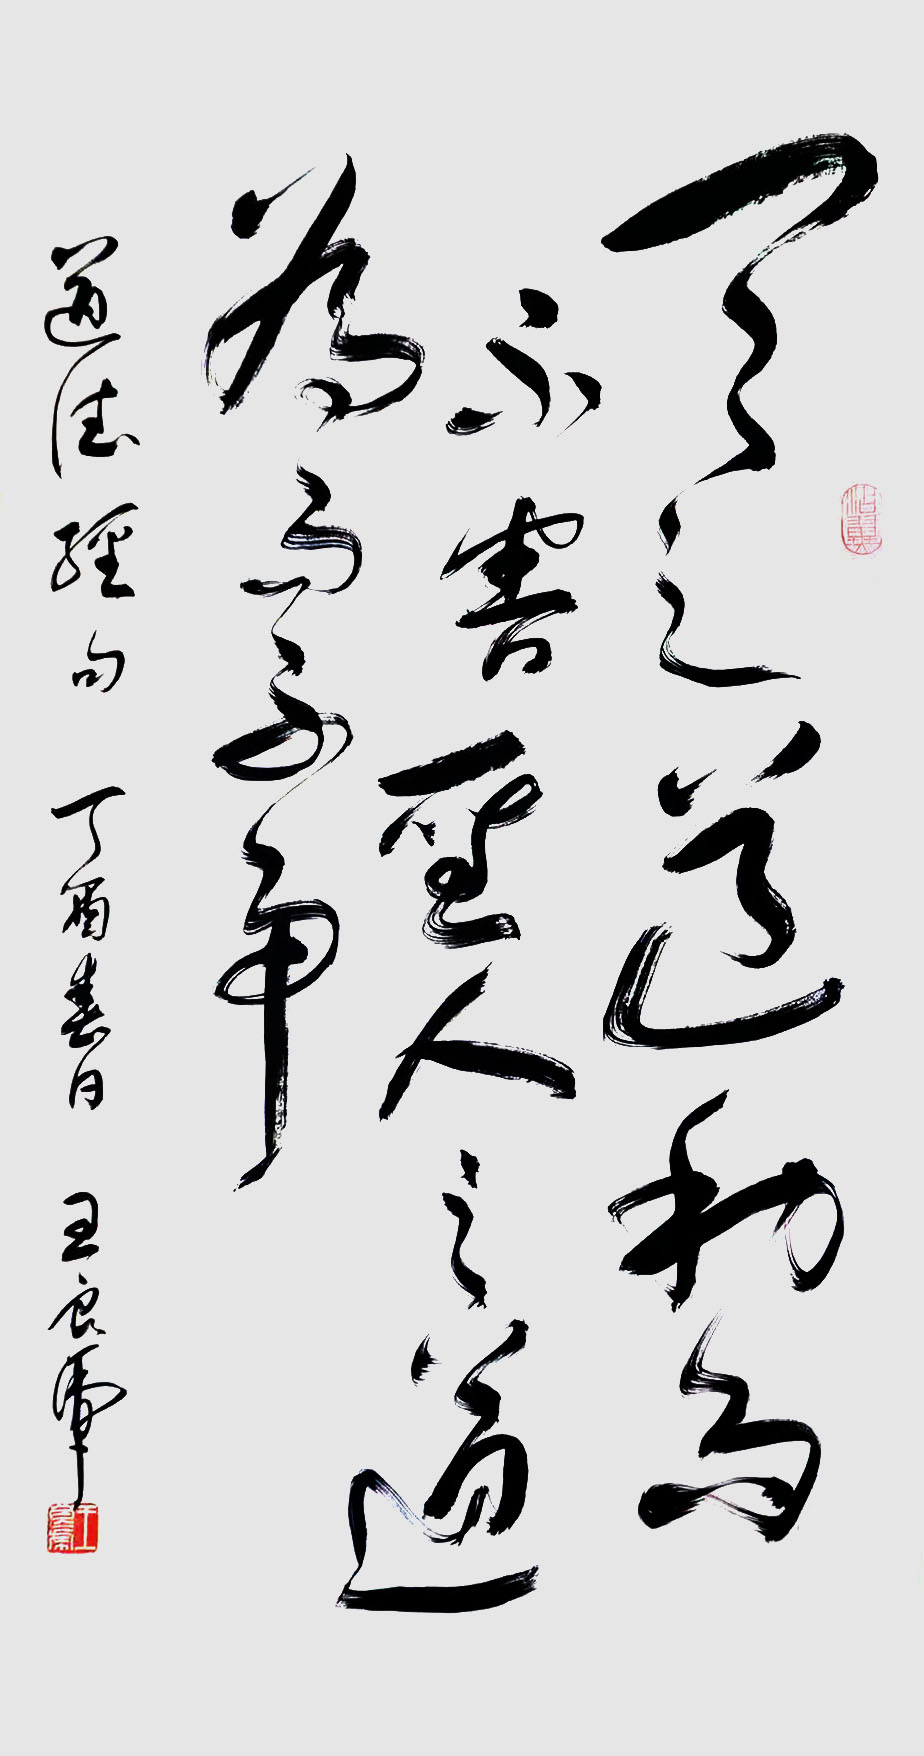 天之道利而
不害聖人之道
為而不争
道德經句 丁酉春日 王良